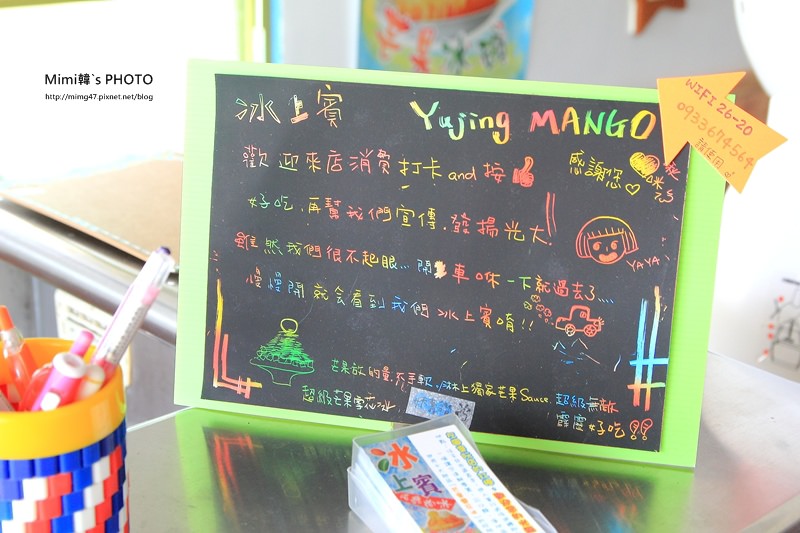 Mimi韓`s PHOTO
http://mimg47.pixnet.net/blog
冰上賓 Yujing MANGO
WIFI 26-20
0933674564
請使用
歡迎來店消費打卡and按
感謝您
好吃,再幫我們宣傳.發揚光大!
雖然我們很不起眼... 開車咻一下就過去了....
YAYA
慢慢開就会看到我們冰上賓唷!!
芒果放的量,不手軟,淋上獨家芒果Sauce.超級無敵
超級芒果雪花冰
霹靂好吃!!
冰
上賓